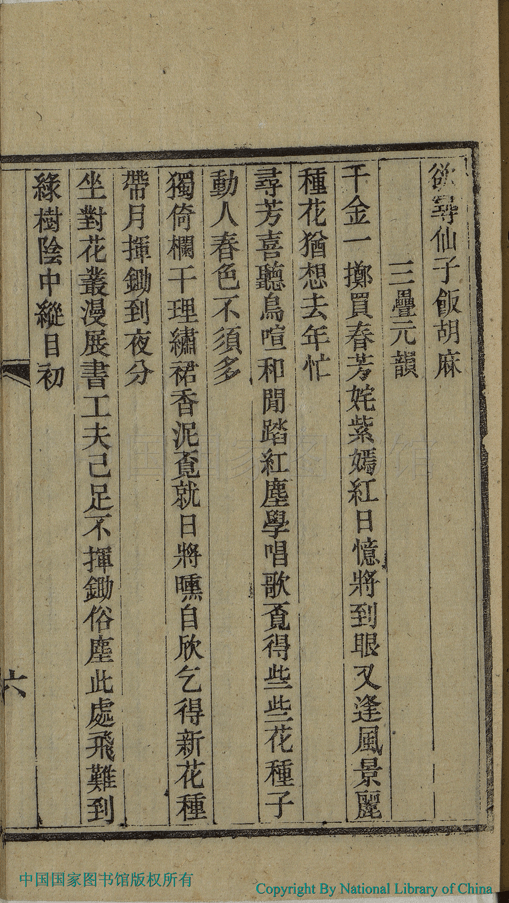 欲尋仙子飯胡麻
三疊元韻
千金一擲買春芳姹紫嫣紅日憶將到眼又逢風景麗
種花猶想去年忙
尋芳喜聽鳥喧和閒踏紅塵學唱歌覓得些些花種子
動人春色不須多
獨倚欄干理繡裙香泥覔就日將曛自欣乞得新花種
帶月揮鋤到夜分
坐對花叢漫展書工夫己足不揮鋤俗塵此處飛難到
綠樹陰中縱目初
六
中国国家图书馆版权所有
Copyright By National Library of China